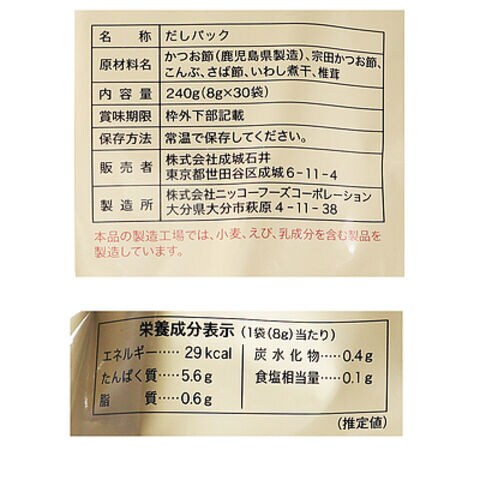 名称 だしパック
原材料名 かつお節(鹿児島県製造)、宗田かつお節、
こんぶ、さば節、いわし煮干、椎茸
内容量 240g(8g×30袋)
賞味期限 枠外下部記載
保存方法 常温で保存してください。
販売者 株式会社成城石井
東京都世田谷区成城6-11-4
製造所 株式会社ニッコーフーズコーポレーション
大分県大分市萩原4-11-38
本品の製造工場では、小麦、えび、乳成分を含む製品を
製造しています。
栄養成分表示(1袋(8g)当たり)
エネルギー……29kcal 炭水化物……0.4g
たんぱく質……5.6g 食塩相当量……0.1g
脂質……0.6g
(推定値)